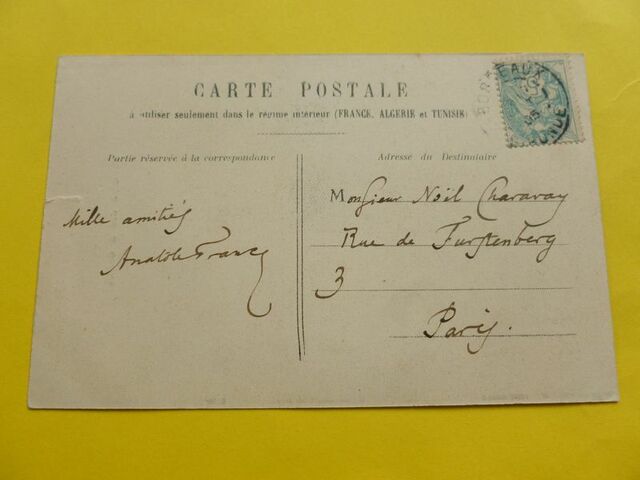 CARTE POSTALE
à utiliser seulement dans le régime intérieur (FRANCE, ALGERIE et TUNISIE)
Partie réservée à la correspondance
Adresse du Destinataire
Mille amitiés
Anatole France
Monsieur Noël Charavay
Rue de Furstenberg
3
Paris.
BORDEAUX